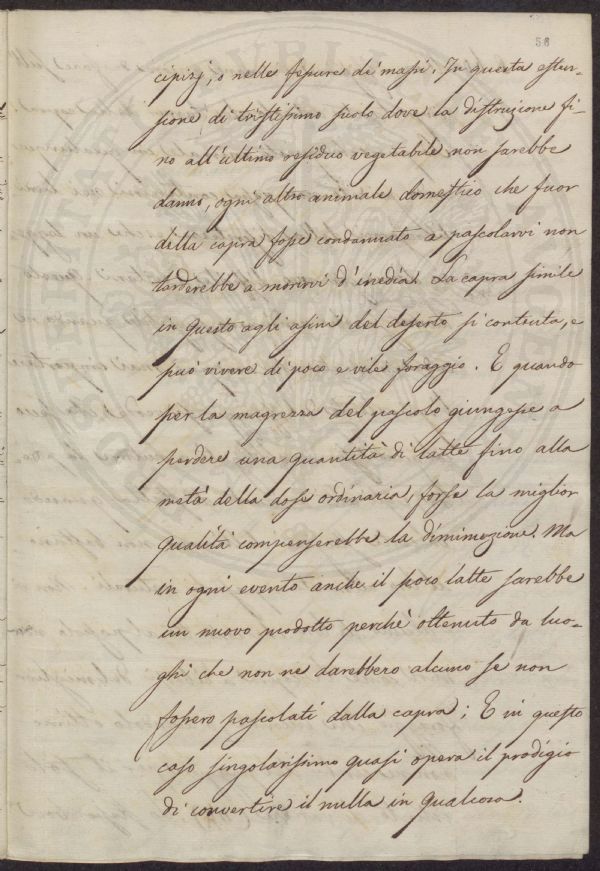 58
cipizj, o nelle fessure di massi. In questa esten-
sione di tristissimo suolo dove la distruzione fi-
no all'ultimo residuo vegetabile non sarebbe
danno, ogni altro animale domestico che fuor
della capra fosse condannato a pascolarvi non
tarderebbe a morirvi d'inedia. La capra simile
in questo agli asini del deserto si contenta, e
può vivere di poco e vile foraggio. E quando
per la magrezza del pascolo giungesse a
perdere una quantità di latte fino alla
metà della dose ordinaria, forse la miglior
qualità compenserebbe la diminuzione. Ma
in ogni evento anche il poco latte sarebbe
un nuovo prodotto perchè ottenuto da luo-
ghi che non ne darebbero alcuno se non
fossero pascolati dalla capra; E in questo
caso singolarissimo quasi opera il prodigio
di convertire il nulla in qualcosa.